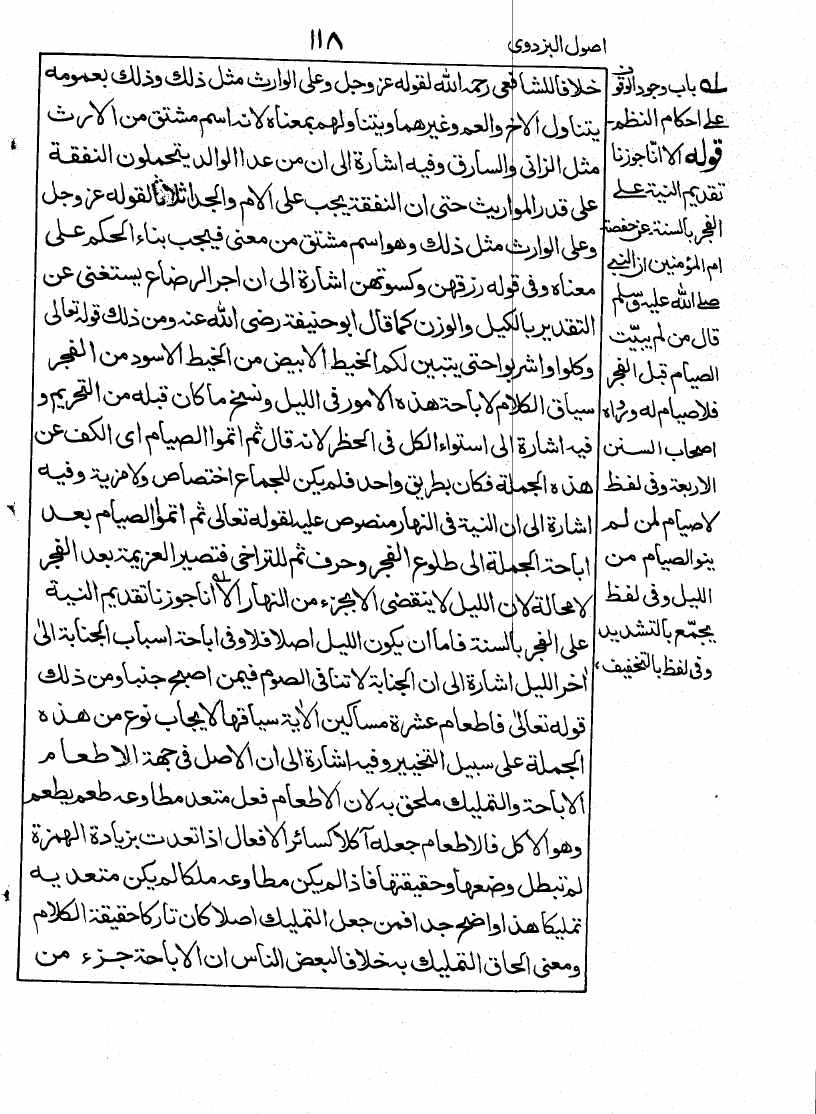 اصول البزدوي
١١٨
خلافا للشافعى رحمه الله لقوله عز وجل وعلى الوارث مثل ذلك وذلك بعمومه
يتناول الاخ والعم وغيرهما ويتناولهم بمعناه لانه اسم مشتق من الارث
مثل الزانى والسارق وفيه اشارة الى ان من عدا الوالد يتحملون النفقة
على قدر المواريث حتى ان النفقة يجب على الام والجد اثلاثا لقوله عز وجل
وعلى الوارث مثل ذلك وهو اسم مشتق من معنى فيجب بناء الحكم على
معناه وفى قوله رزقهن وكسوتهن اشارة الى ان اجر الرضاع يستغنى عن
التقدير بالكيل والوزن كما قال ابو حنيفة رضى الله عنه ومن ذلك قوله تعالى
وكلوا واشربوا حتى يتبين لكم الخيط الابيض من الخيط الاسود من الفجر
سياق الكلام لاباحة هذه الامور فى الليل ونسخ ما كان قبله من التحريم و
فيه اشارة الى استواء الكل فى الحظر لانه قال ثم اتموا الصيام اى الكف عن
هذه الجملة فكان بطريق واحد فلم يكن للجماع اختصاص ولا مزية وفيه
اشارة الى ان النية فى النهار منصوص عليه لقوله تعالى ثم اتموا الصيام بعد
اباحة الجملة الى طلوع الفجر وحرف ثم للتراخى فتصير العزيمة بعد الفجر
لا محالة لان الليل لا ينقضى الا بجزء من النهار الا انا جوزنا تقديم النية
على الفجر بالسنة فاما ان يكون الليل اصلا فلا وفى اباحة اسباب الجنابة الى
اخر الليل اشارة الى ان الجنابة لا تنافى الصوم فيمن اصبح جنبا ومن ذلك
قوله تعالى فاطعام عشرة مساكين الاية سياقها لايجاب نوع من هذه
الجملة على سبيل التخيير وفيه اشارة الى ان الاصل فى جهة الاطعام
الاباحة والتمليك ملحق به لان الاطعام فعل متعد مطاوعه طعم يطعم
وهو الاكل فالاطعام جعله آكلا كسائر الافعال اذا تعدت بزيادة الهمزة
لم تبطل وضعها وحقيقتها فاذا لم يكن مطاوعه ملكا لم يكن متعديه
تمليكا هذا واضح جدا فمن جعل التمليك اصلا كان تاركا حقيقة الكلام
ومعنى الحاق التمليك به خلافا لبعض الناس ان الاباحة جزء من
له باب وجود الوقوف
على احكام النظم
قوله الا انا جوزنا
تقديم النية على
الفجر بالسنة عن حفصة
ام المؤمنين ان النبى
صلى الله عليه وسلم
قال من لم يبيّت
الصيام قبل الفجر
فلا صيام له ورواه
اصحاب السنن
الاربعة وفى لفظ
لا صيام لمن لم
ينو الصيام من
الليل وفى لفظ
يجمّع بالتشديد
وفى لفظ بالتخفيف،